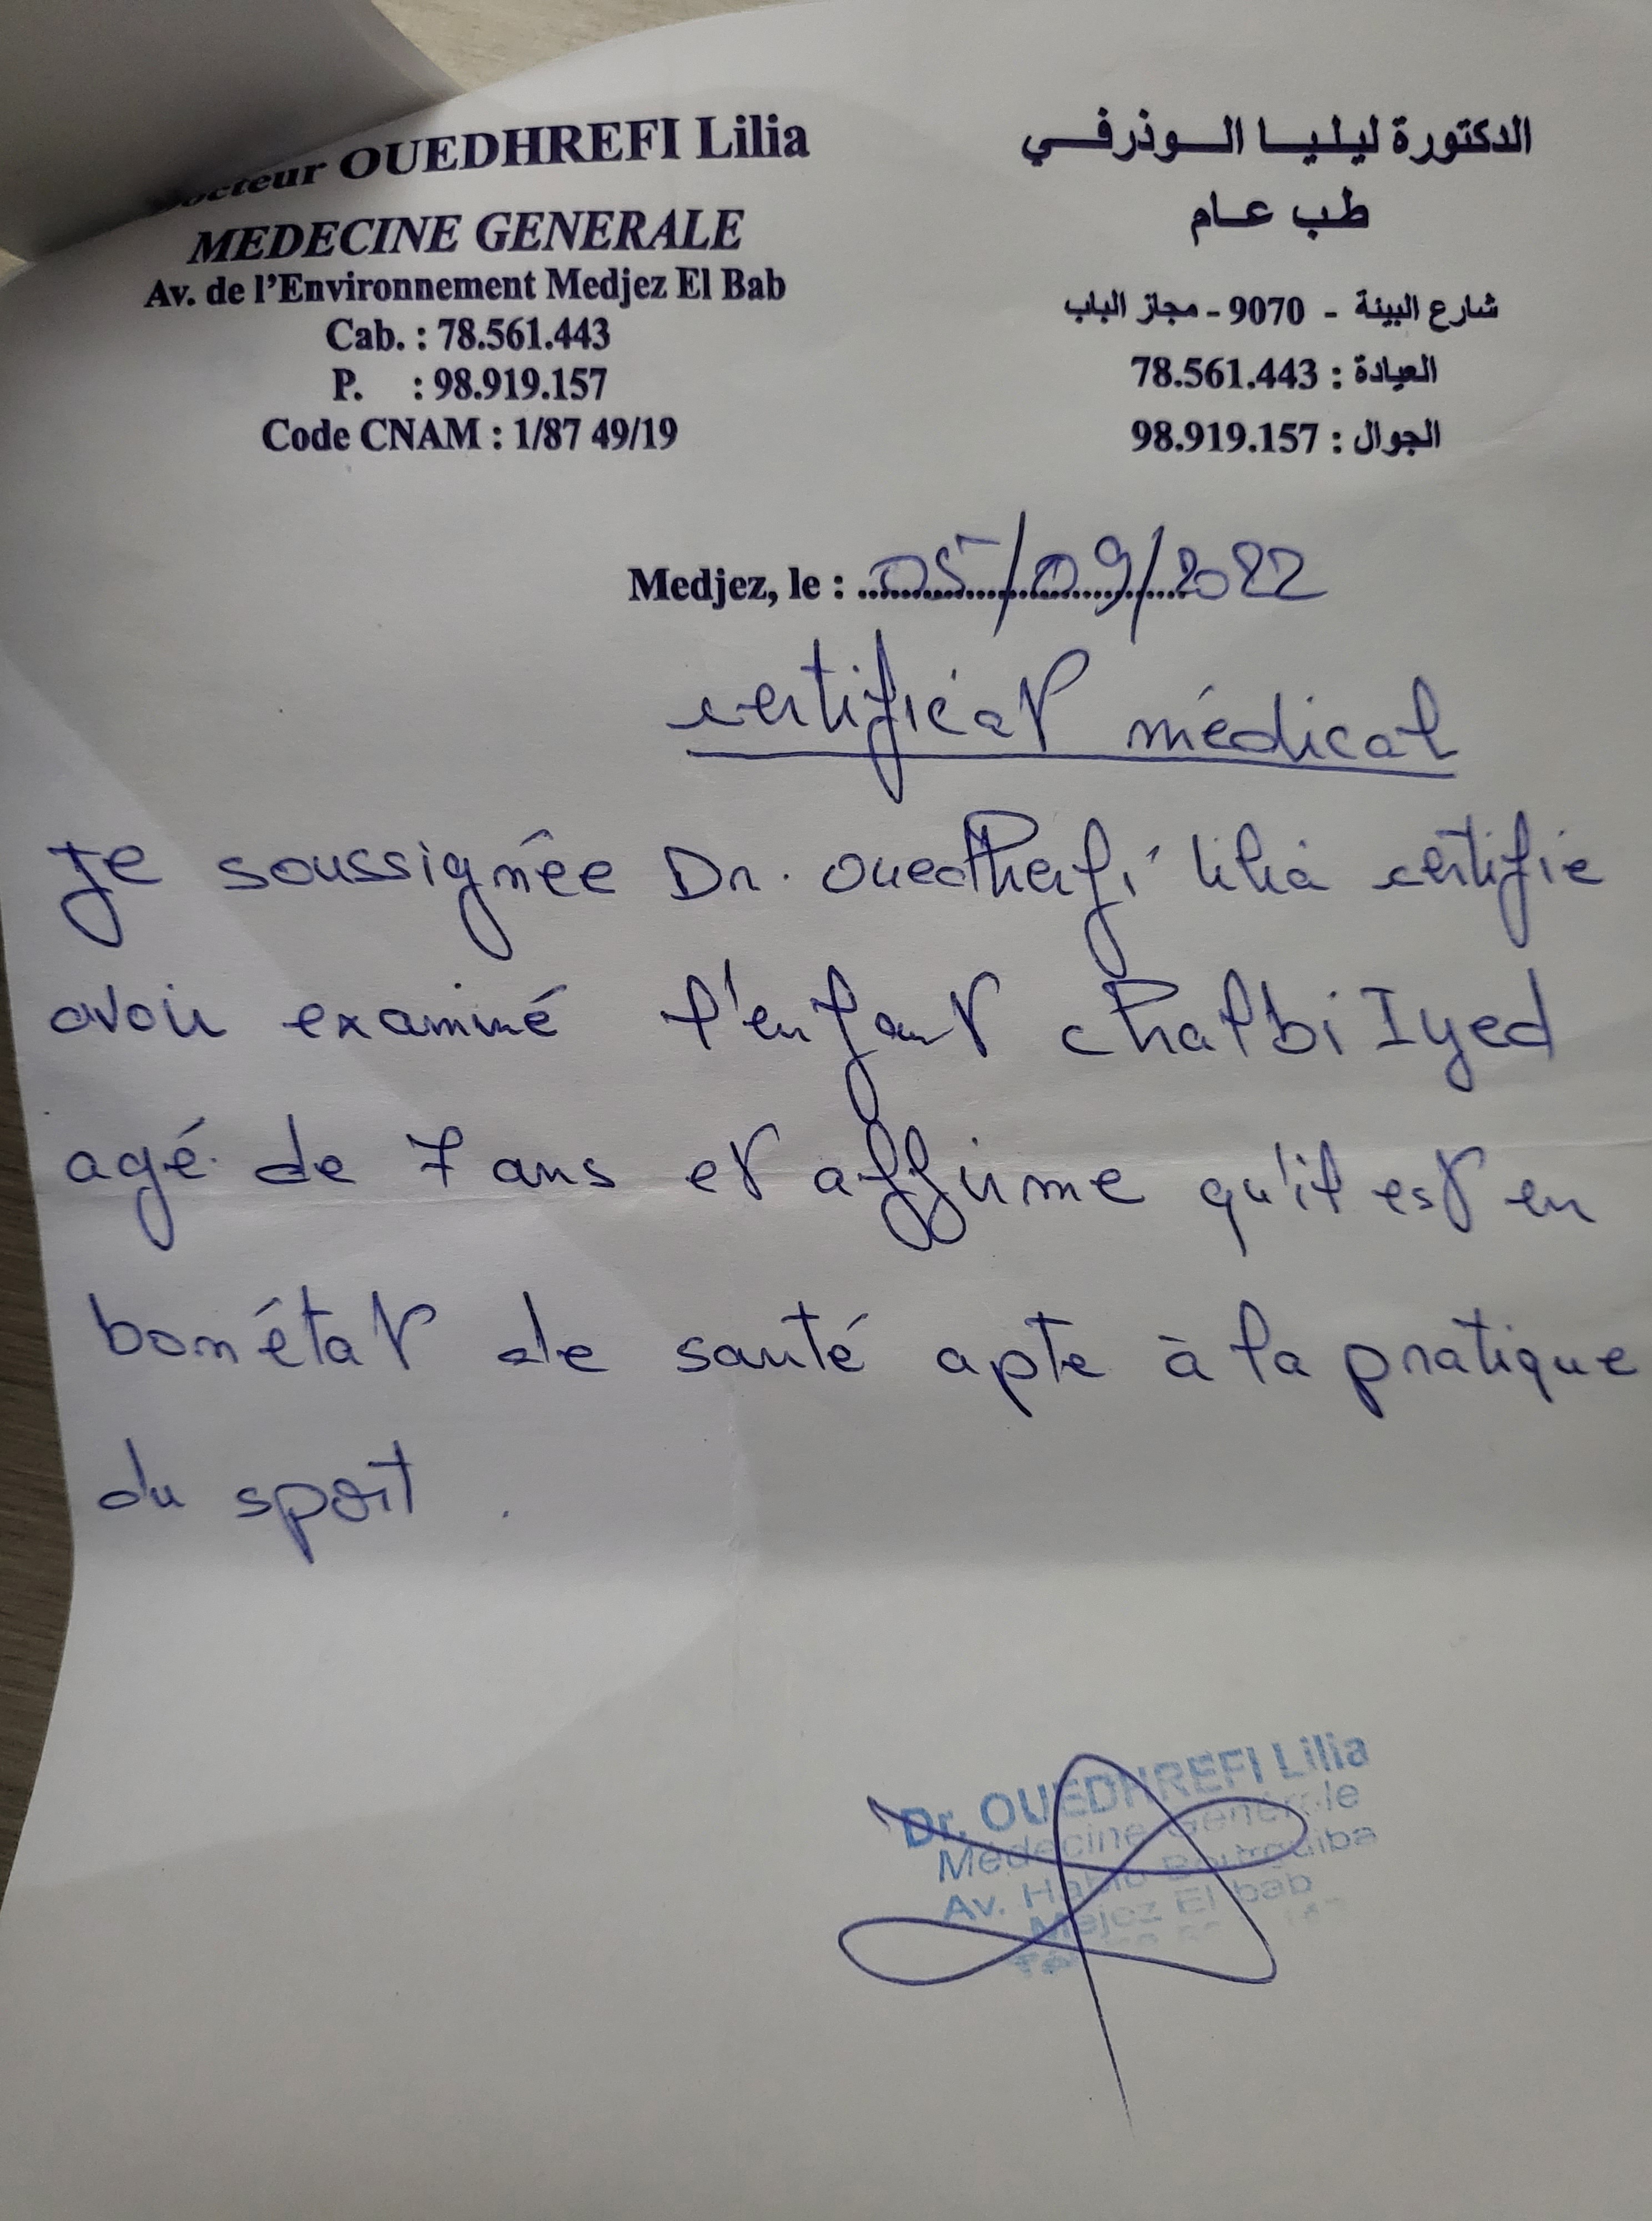 Docteur OUEDHREFI Lilia
MEDECINE GENERALE
Av. de l'Environnement Medjez El Bab
Cab. : 78.561.443
P. : 98.919.157
Code CNAM : 1/87 49/19
الدكتورة ليليا الوذرفي
طب عام
شارع البيئة - 9070 - مجاز الباب
العيادة : 78.561.443
الجوال : 98.919.157
Medjez, le : 05/09/2022
certificat médical
Je soussignée Dr. ouedherfi lilia certifie
avoir examiné l'enfant chalbi Iyed
agé de 7 ans et affirme qu'il est en
bon état de santé apte à la pratique
du sport.
Dr. OUEDHREFI Lilia
Médecine Générale
Av. Habib Bourguiba
Mejez El bab